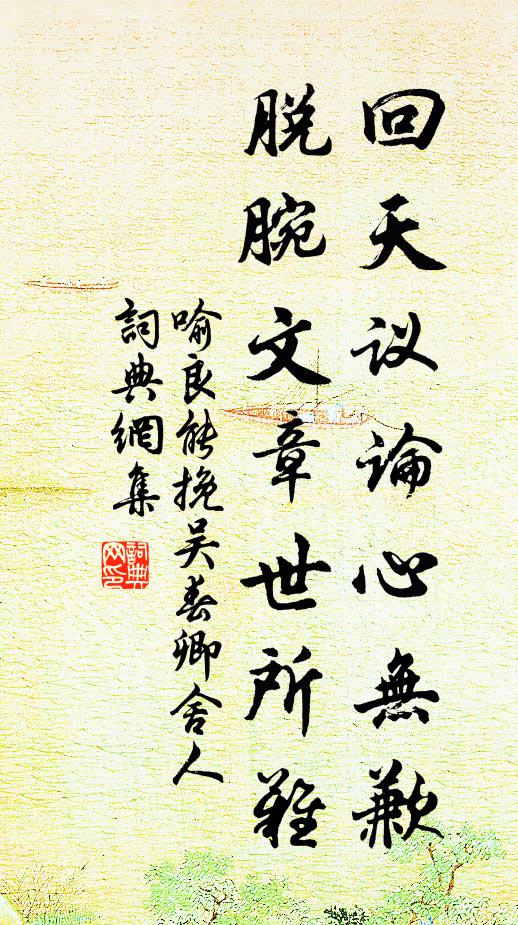 回天议論心無歉
脱腕文章世所難
喻良能挽吴春卿舍人
詞典網集
詞典网印